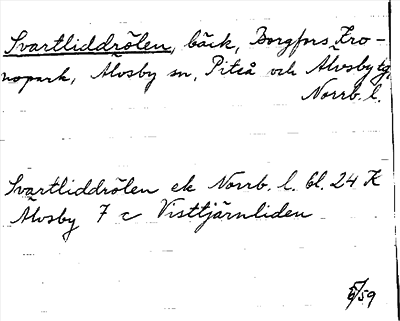 Svartliddrölen, bäck, Borgfors Kro-
nopark, Älvsby sn, Piteå och Älvsby tg,
Norrb. l.
Svartliddrölen ek Norrb. l. bl. 24 K
Älvsby 7 c Visttjärnliden
5/59